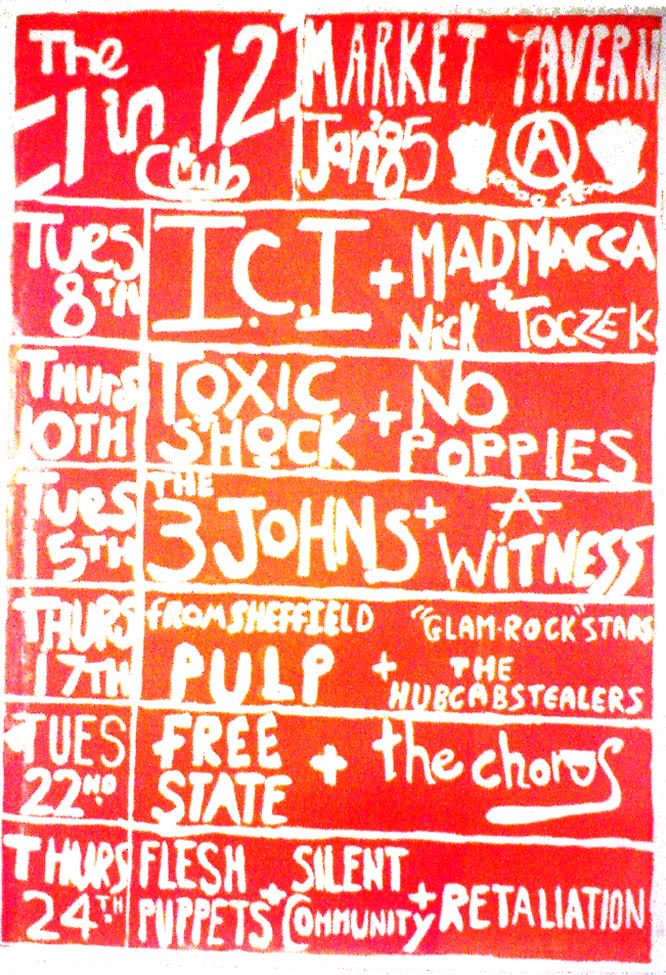 The
1 in 12
Club
MARKET TAVERN
Jan '85
A
Tues
8TH
I.C.I + MADMACCA
+ NICK TOCZEK
THURS
10TH
TOXIC
SHOCK
+ NO
POPPIES
Tues
15TH
THE
3 JOHNS + A
WITNESS
THURS
17TH
FROM SHEFFIELD
PULP
+ "GLAM-ROCK" STARS
THE
HUBCABSTEALERS
TUES
22ND
FREE
STATE
+ the chorus
THURS
24TH
FLESH
PUPPETS
+ SILENT
COMMUNITY
+ RETALIATION